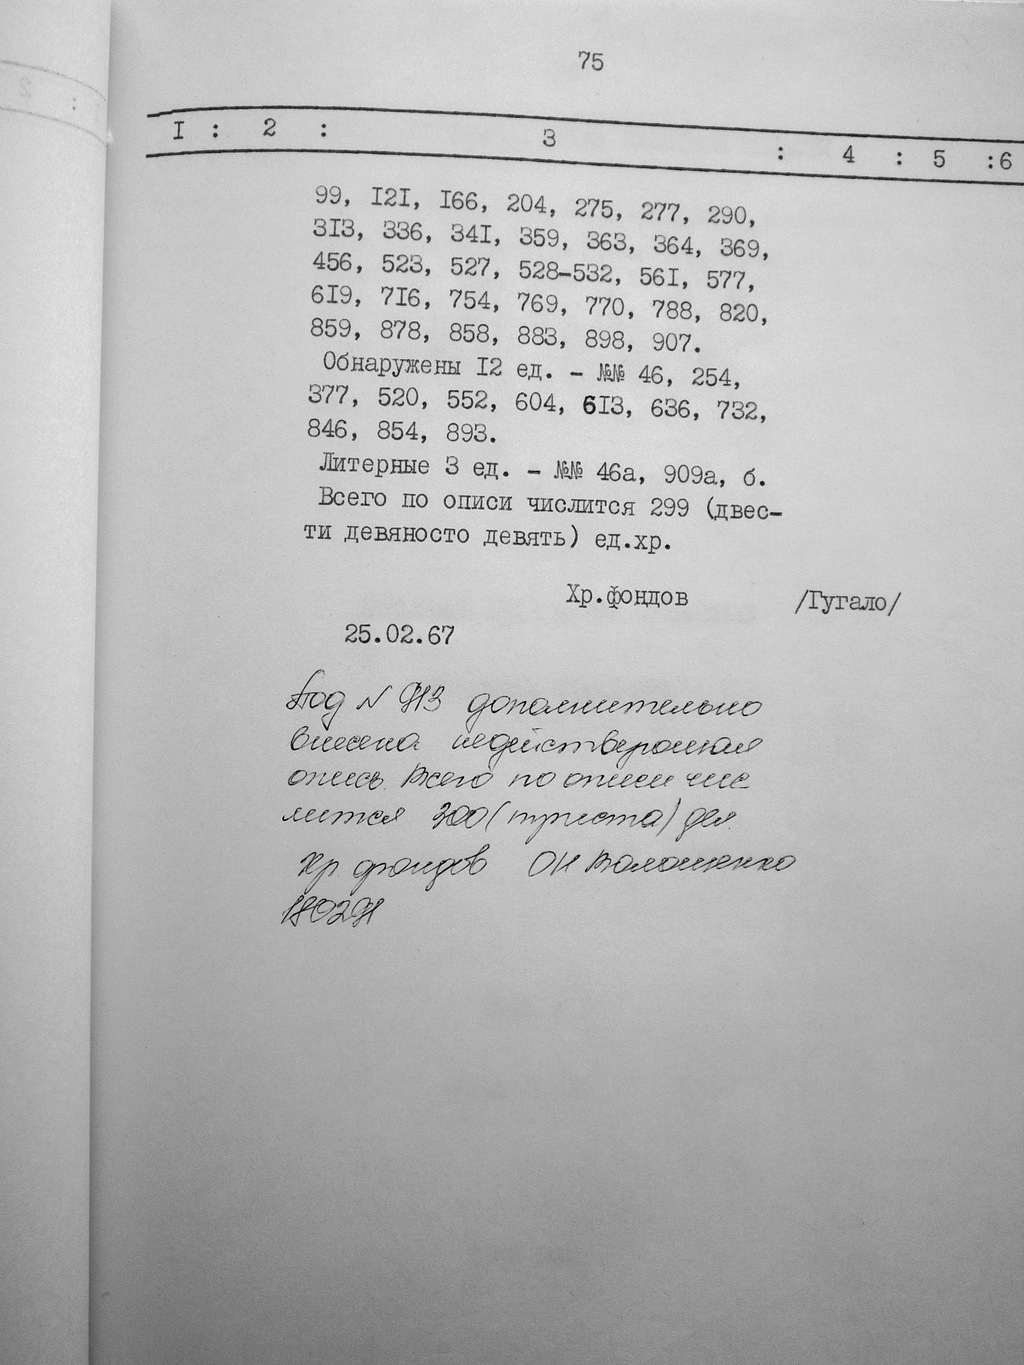 75
I : 2 : 3 : 4 : 5 :6
99, I2I, I66, 204, 275, 277, 290,
3I3, 336, 34I, 359, 363, 364, 369,
456, 523, 527, 528-532, 56I, 577,
6I9, 7I6, 754, 769, 770, 788, 820,
859, 878, 858, 883, 898, 907.
Обнаружены I2 ед. - №№ 46, 254,
377, 520, 552, 604, 6I3, 636, 732,
846, 854, 893.
Литерные 3 ед. - №№ 46а, 909а, б.
Всего по описи числится 299 (двес-
ти девяносто девять) ед.хр.
Хр.фондов /Гугало/
25.02.67
Под N 913 дополнительно
внесена недействующая
опись. Всего по описи чис
лится 300 (триста) дел.
Хр фондов ОИ Волошенко